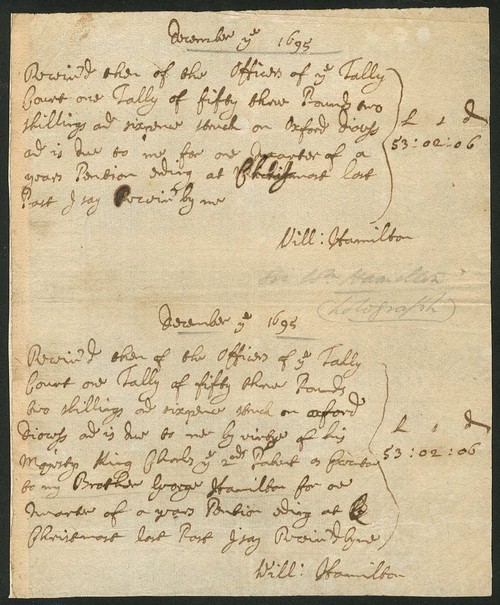 December ye 1695
Receiv'd then of the Officers of ye Tally
Court one Tally of fifty three Pounds two
shillings ad sixpence struck on Oxford diocess
ad is due to me for one Quarter of a
years Pention ending at Christmast last
Past I say Receiv'd by me
£ s d
53:02:06
Will: Hamilton
Sir Wm Hamilton
(holograph)
December ye 1695
Receiv'd then of the Officers of ye Tally
Court one Tally of fifty three Pounds
two shillings ad sixpence struck on oxford
diocess ad is due to me by virtue of his
Majesty King Charles ye 2nds Patent
to my Brother George Hamilton for one
Quarter of a years Pention ending at
Christmast last Past I say Receiv'd by me
£ s d
53:02:06
Will: Hamilton